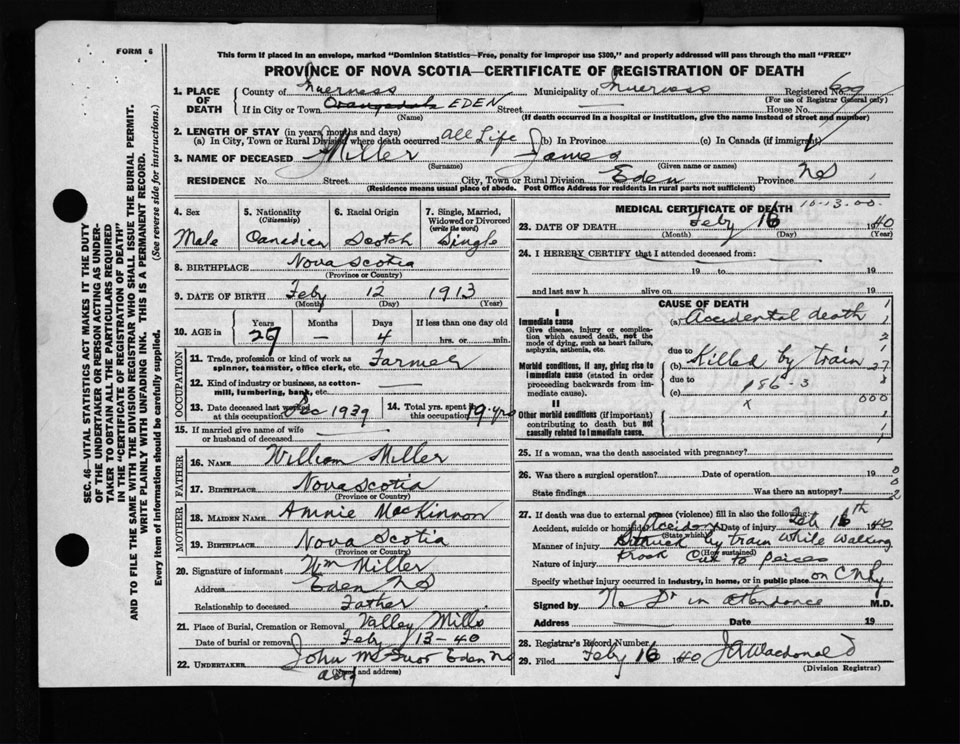 FORM 6
This form if placed in an envelope, marked "Dominion Statistics—Free, penalty for improper use $300," and properly addressed will pass through the mail "FREE"
PROVINCE OF NOVA SCOTIA—CERTIFICATE OF REGISTRATION OF DEATH
1. PLACE OF DEATH
County of Inverness Municipality of Inverness Registered No. 609
(For use of Registrar General only)
If in City or Town Orangedale EDEN Street — House No.
(Name) (If death occurred in a hospital or institution, give the name instead of street and number)
2. LENGTH OF STAY (in years, months and days)
(a) In City, Town or Rural Division where death occurred all Life (b) In Province (c) In Canada (if immigrant)
3. NAME OF DECEASED Miller James
(Surname) (Given name or names)
RESIDENCE No. Street City, Town or Rural Division Eden Province NS
(Residence means usual place of abode. Post Office Address for residents in rural parts not sufficient)
4. Sex Male
5. Nationality (Citizenship) Canadian
6. Racial Origin Scotch
7. Single, Married, Widowed or Divorced (write the word) Single
8. BIRTHPLACE Nova Scotia
(Province or Country)
9. DATE OF BIRTH Feby 12 1913
(Month) (Day) (Year)
10. AGE in Years 27 Months — Days 4 If less than one day old hrs. or min.
OCCUPATION
11. Trade, profession or kind of work as spinner, teamster, office clerk, etc. Farmer
12. Kind of industry or business, as cotton-mill, lumbering, bank, etc. —
13. Date deceased last worked at this occupation Dec 1939
14. Total yrs. spent in this occupation 19 yrs
15. If married give name of wife or husband of deceased —
FATHER
16. NAME William Miller
17. BIRTHPLACE Nova Scotia
(Province or Country)
MOTHER
18. MAIDEN NAME Annie MacKinnon
19. BIRTHPLACE Nova Scotia
(Province or Country)
20. Signature of informant Wm Miller
Address Eden NS
Relationship to deceased Father
21. Place of Burial, Cremation or Removal Valley Mills
Date of burial or removal Feby 13-40
22. UNDERTAKER John Eden NS
(Name and address)
MEDICAL CERTIFICATE OF DEATH 10-13-00-
23. DATE OF DEATH Feby 16 1940
(Month) (Day) (Year)
24. I HEREBY CERTIFY that I attended deceased from:
19 to 19
and last saw h alive on 19
CAUSE OF DEATH
I
Immediate cause
Give disease, injury or complication which caused death, not the mode of dying, such as heart failure, asphyxia, asthenia, etc.
(a) Accidental death
due to
Morbid conditions, if any, giving rise to immediate cause (stated in order proceeding backwards from immediate cause).
(b) Killed by train
due to
(c) 186-3
x 000
II
Other morbid conditions (if important) contributing to death but not causally related to immediate cause.
25. If a woman, was the death associated with pregnancy?
26. Was there a surgical operation? Date of operation 19
State findings Was there an autopsy?
27. If death was due to external causes (violence) fill in also the following:
Accident, suicide or homicide? Accident Date of injury Feb 16th 1940
(State which)
Manner of injury Struck by train while walking
(How sustained)
Nature of injury Cut to peices
Specify whether injury occurred in industry, in home, or in public place on CNRy
Signed by No Dr in attendance M.D.
Address Date 19
28. Registrar's Record Number
29. Filed Feby 16 1940 J A Macdonald
(Division Registrar)
SEC. 46—VITAL STATISTICS ACT MAKES IT THE DUTY OF THE UNDERTAKER OR PERSON ACTING AS UNDERTAKER TO OBTAIN ALL THE PARTICULARS REQUIRED IN THE "CERTIFICATE OF REGISTRATION OF DEATH" AND TO FILE THE SAME WITH THE DIVISION REGISTRAR WHO SHALL ISSUE THE BURIAL PERMIT.
WRITE PLAINLY WITH UNFADING INK. THIS IS A PERMANENT RECORD.
Every item of information should be carefully supplied. (See reverse side for instructions.)